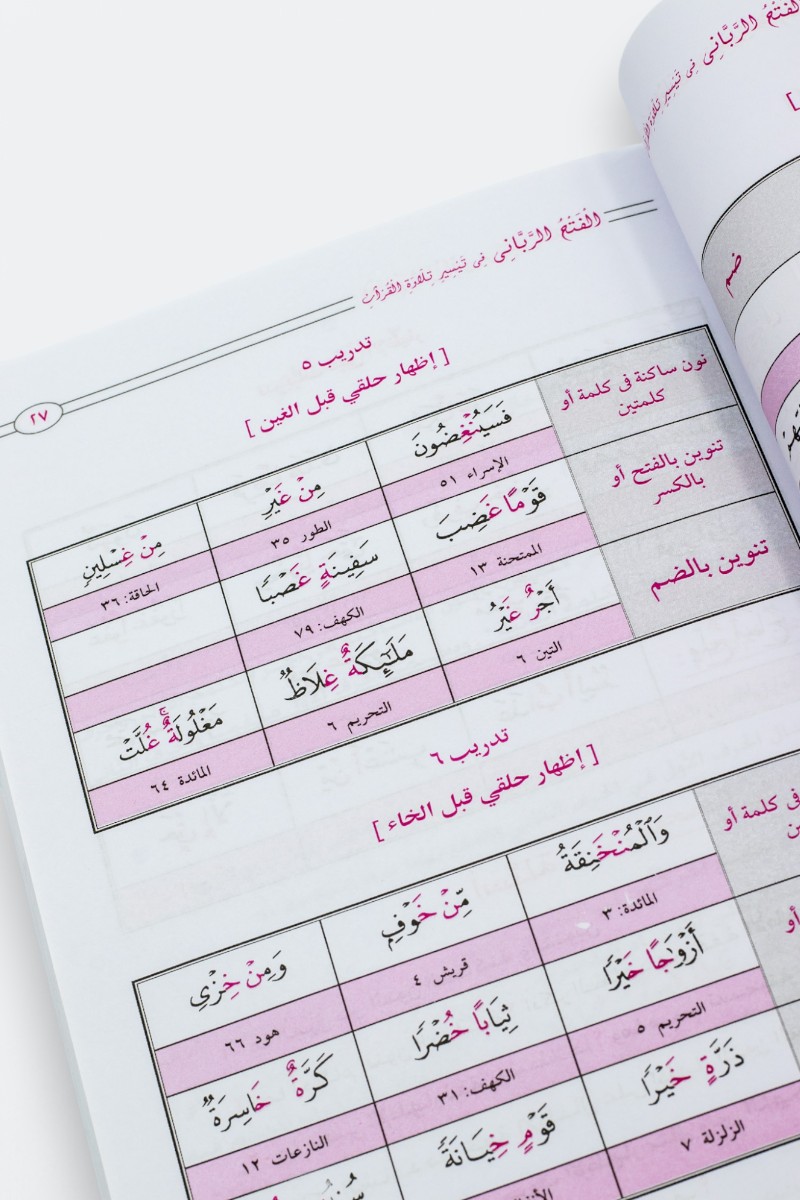 الْفَتْحُ الرَّبَّانِي فِي تَيْسِيرِ تِلَاوَةِ الْقُرْآنِ
٢٧
تدريب ٥
[ إظهار حلقي قبل الغين ]
نون ساكنة فى كلمة أو كلمتين
فَسَيُنْغِضُونَ
مِنْ غَيْرِ
مِنْ غِسْلِينٍ
الإسراء ٥١
الطور ٣٥
الحاقة: ٣٦
تنوين بالفتح أو بالكسر
قَوْمًا غَضِبَ
سَفِينَةٍ غَصْبًا
الممتحنة ١٣
الكهف: ٧٩
تنوين بالضم
أَجْرٌ غَيْرُ
مَلَٰٓئِكَةٌ غِلَاظٌ
مَغْلُولَةٌ ۚ غُلَّتْ
التين ٦
التحريم ٦
المائدة ٦٤
تدريب ٦
[ إظهار حلقي قبل الخاء ]
فى كلمة أو
وَٱلْمُنْخَنِقَةُ
مِّنْ خَوْفٍ
وَمِنْ خِزْىِ
المائدة: ٣
قريش ٤
هود ٦٦
أو
أَزْوَٰجًا خَيْرًا
ثِيَابًا خُضْرًا
كَرَّةٌ خَاسِرَةٌ
التحريم ٥
الكهف: ٣١
النازعات ١٢
ذَرَّةٍ خَيْرًا
قَوْمٍ خِيَانَةً
الزلزلة ٧
الْفَتْحُ الرَّبَّانِي فِي تَيْسِيرِ تِلَاوَةِ
ضم